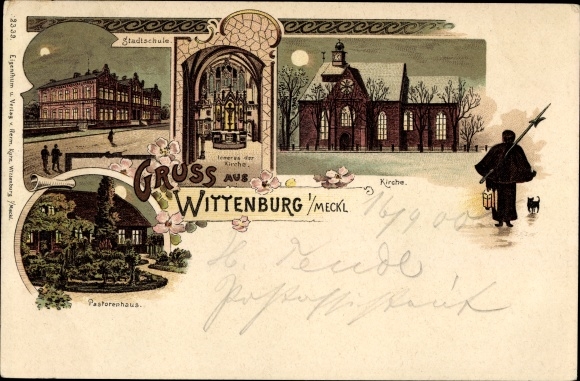 2332. Eigenthum u. Verlag v. Herm. Kørz, Wittenburg i/Meckl.
Stadtschule.
Inneres der
Kirche.
Kirche.
GRUSS
AUS
WITTENBURG I/MECKL
Pastorenhaus.
1/6 1900
H.
Postassistent